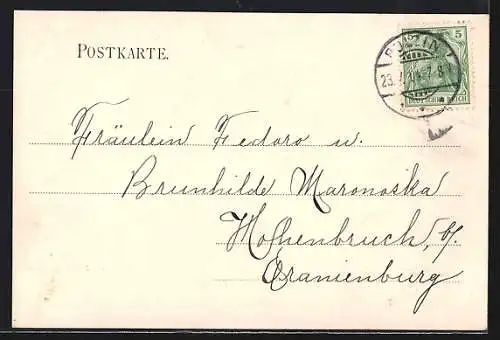 POSTKARTE.
5 5
23.
7-8
DEUTSCHES REICH
Fräulein Fedora u.
Brunhilde Maronoska
Hohenbruch, b/.
Oranienburg